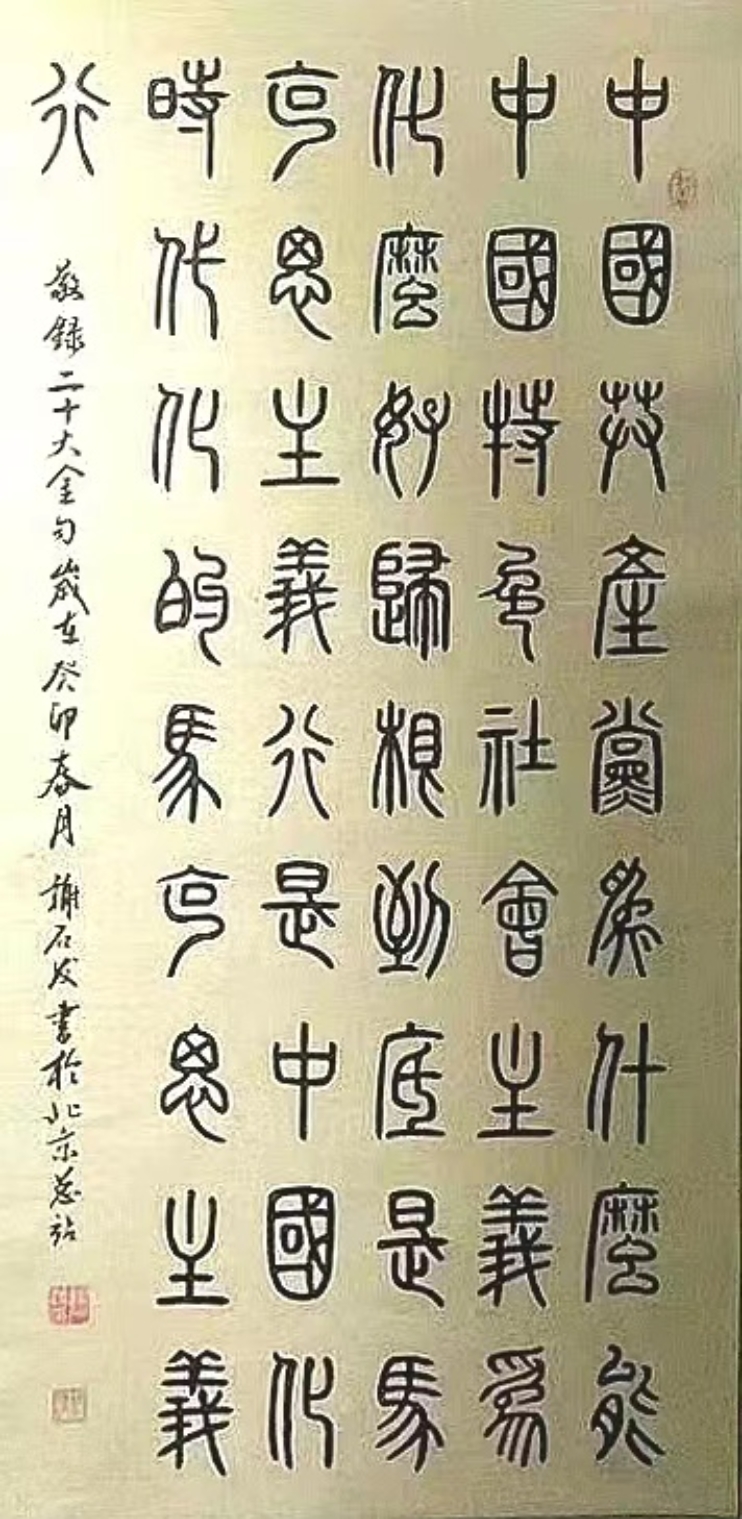 中國共產黨為什麼能
中國特色社會主義為
化麼好歸根到底是馬
克思主義行是中國化
時代化的馬克思主義
行
敬録二十大金句歲在癸卯春月謝石发書於北京